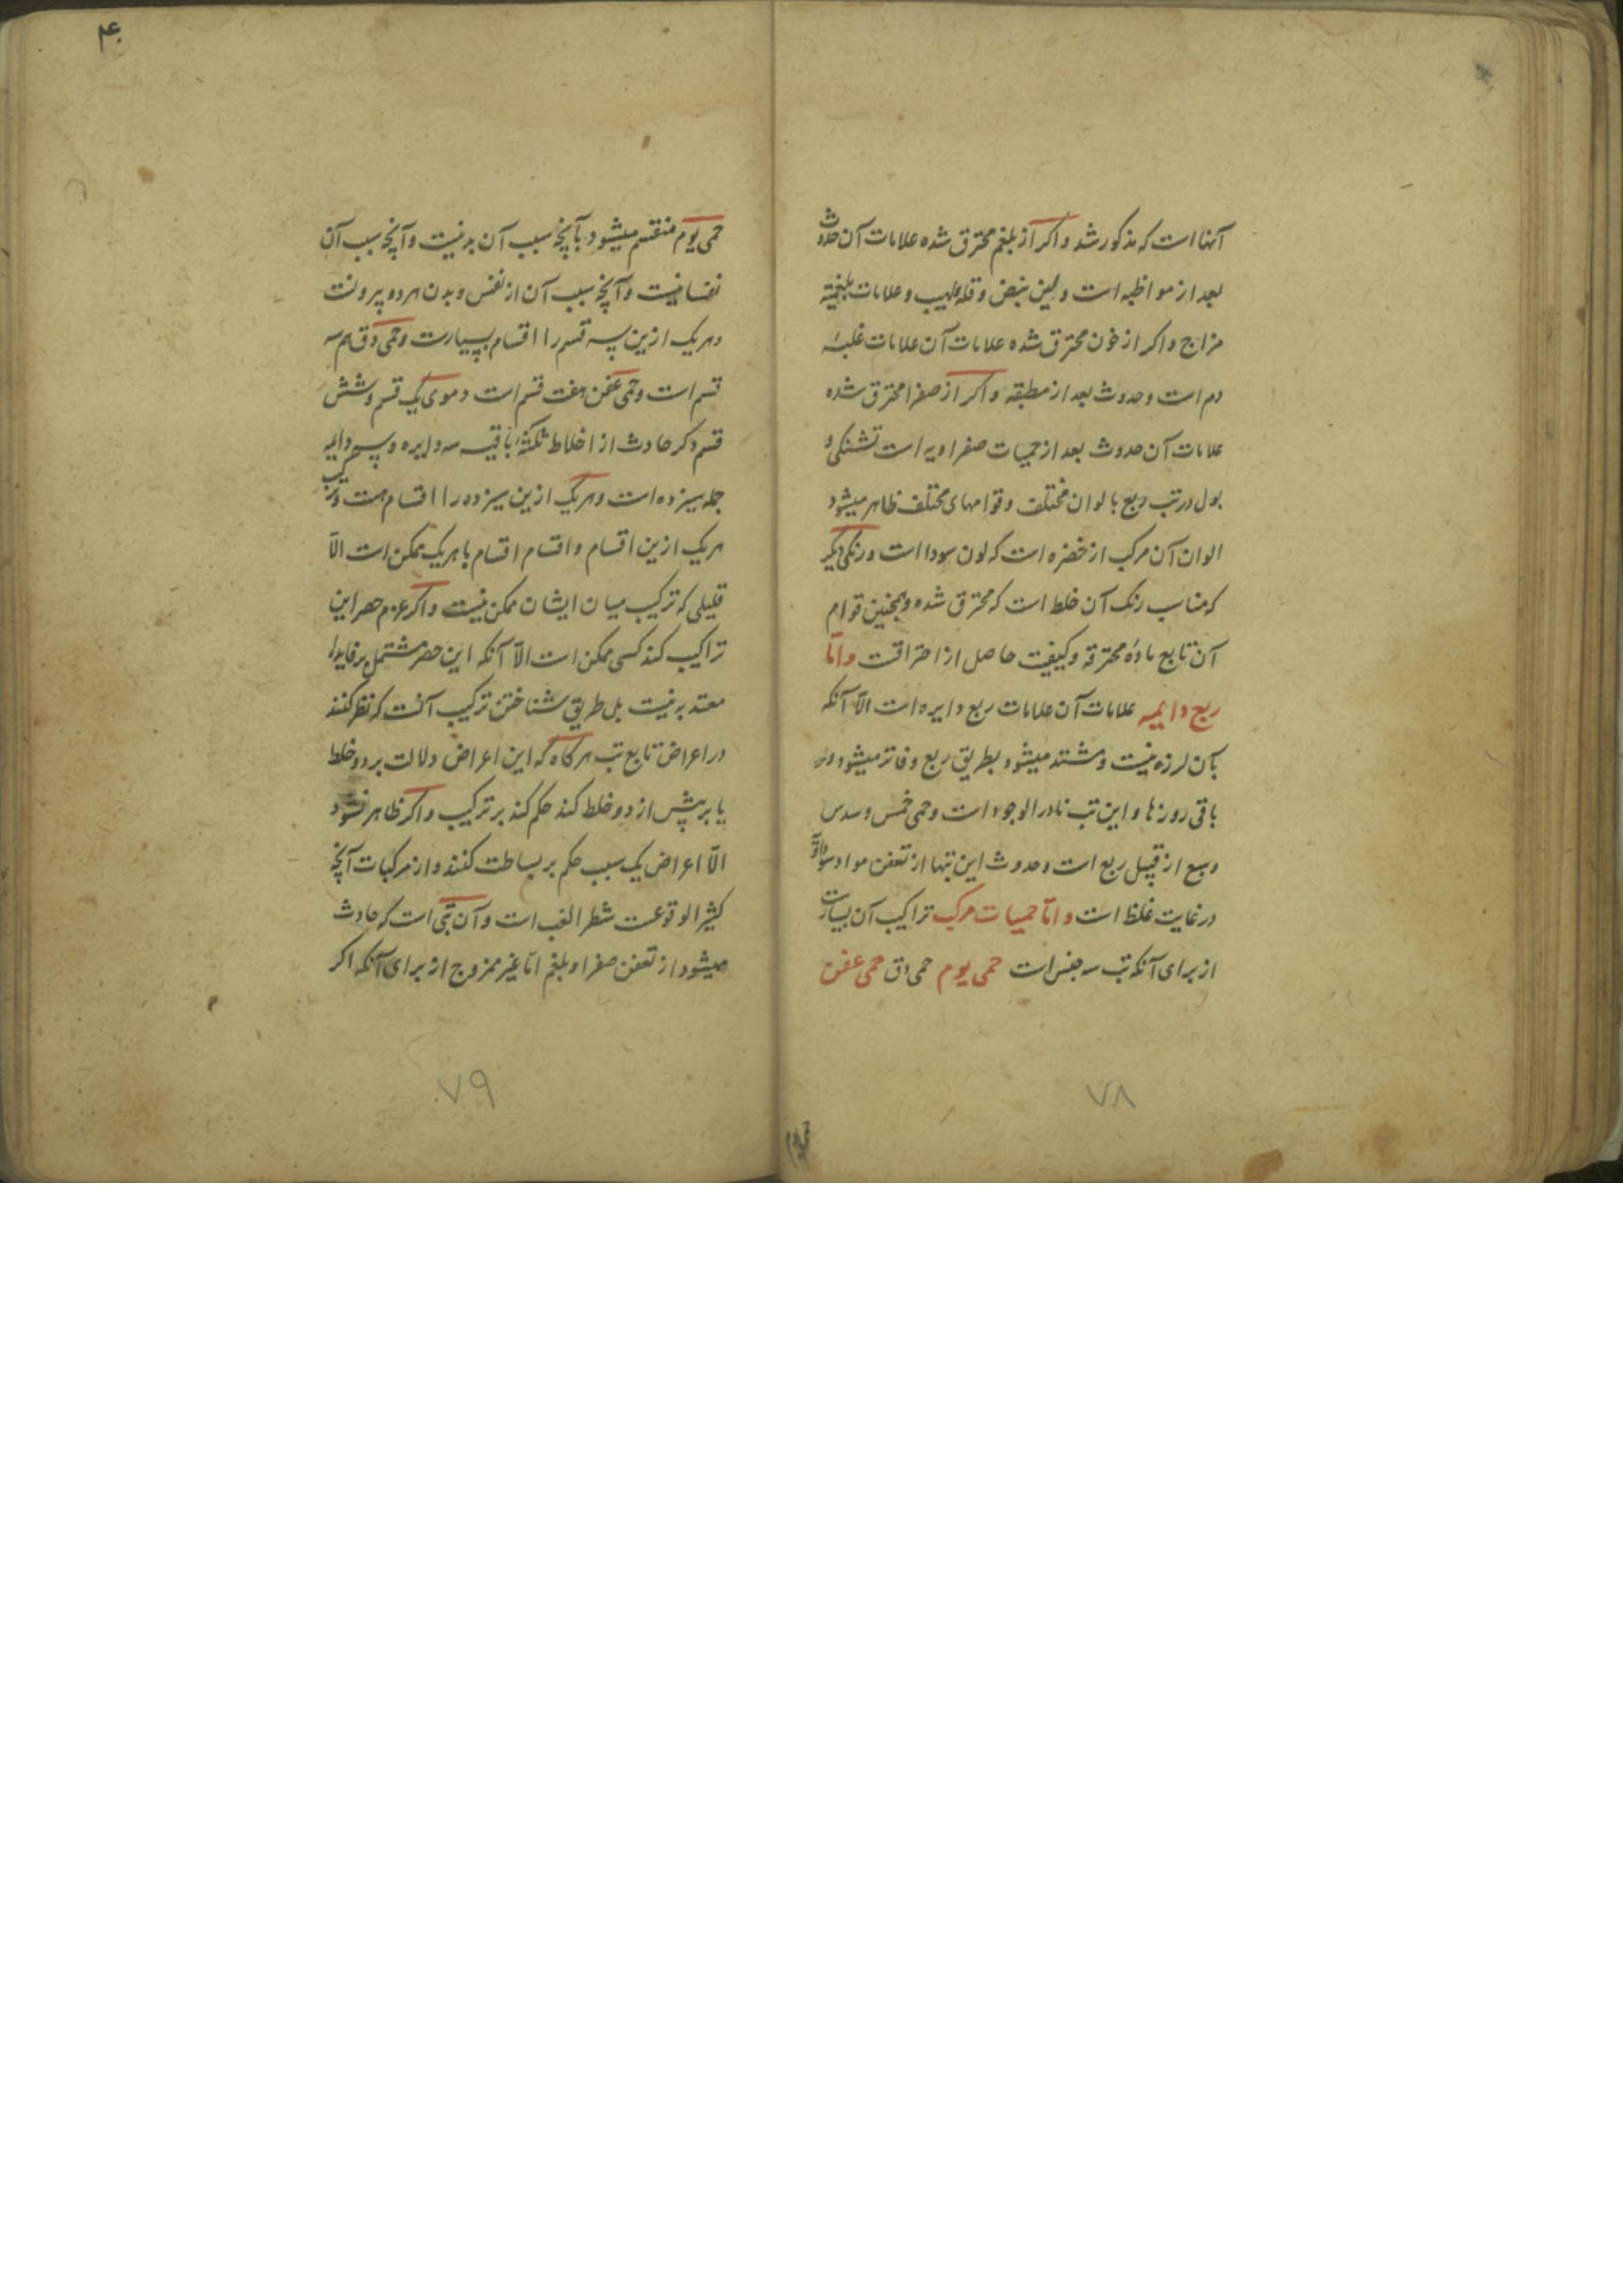 آنها است که مذکور شد و اکر از بلغم محترق شده علامات آن حدوث
بعد از مواظبه است و لین نبض و قلة لهیب و علامات بلغمیة
مزاج و اکر از خون محترق شده علامات آن علامات غلبهٔ
دم است و حدوث بعد از مطبقه و اکر از صفرا محترق شده
علامات آن حدوث بعد از حمیات صفراویه است تشنکی و
بول در تب ربع بالوان مختلف و قوامهای مختلف ظاهر میشود
الوان آن مرکب از خضره است که لون سودا است و رنکی دیکر
که مناسب رنک آن خلط است که محترق شده و همچنین قوام
آن تابع مادهٔ محترقه و کیفیت حاصل از احتراقست و امّا
ربع دایمیه علامات آن علامات ربع دایره است الّا آنکه
بآن لرزه نیست و مشتد میشود بطریق ربع و فاتر میشود در
باقی روزها و این تب نادر الوجود است و حمی خمس و سدس
و سبع از قبیل ربع است و حدوث این تبها از تعفن مواد سوداوی
در غایت غلظ است و امّا حمیات مرکب تراکیب آن بسیارست
از برای آنکه تب سه جنس است حمی یوم حمی دق حمی عفن
۷۸
۴۰
حمی یوم منقسم میشود بآنچه سبب آن بدنیست و آنچه سبب آن
نفسانیست و آنچه سبب آن از نفس و بدن هر دو بیرونست
و هر یک ازین سه قسم را اقسام بسیارست و حمی دق هم سه
قسم است و حمی عفن هفت قسم است دموی یک قسم و شش
قسم دکر حادث از اخلاط ثلثهٔ باقیه سه دایره و سه دایمه
جمله سیزده است و هر یک ازین سیزده را اقسام هست و ترکیب
هر یک ازین اقسام و اقسام اقسام با هر یک ممکن است الّا
قلیلی که ترکیب میان ایشان ممکن نیست و اکر عزم حصر این
تراکیب کند کسی ممکن است الّا آنکه این حصر مشتمل بر فایدهٔ
معتد به نیست بل طریق شناختن ترکیب آنست که نظر کنند
در اعراض تابع تب هر کاه که این اعراض دلالت بر دو خلط
یا بر بیش از دو خلط کند حکم کند بر ترکیب و اکر ظاهر نشود
الّا اعراض یک سبب حکم بر بساطت کنند و از مرکبات آنچه
کثیر الوقوعست شطر الغب است و آن تبی است که حادث
میشود از تعفن صفرا و بلغم امّا غیر ممزوج از برای آنکه اکر
۷۹